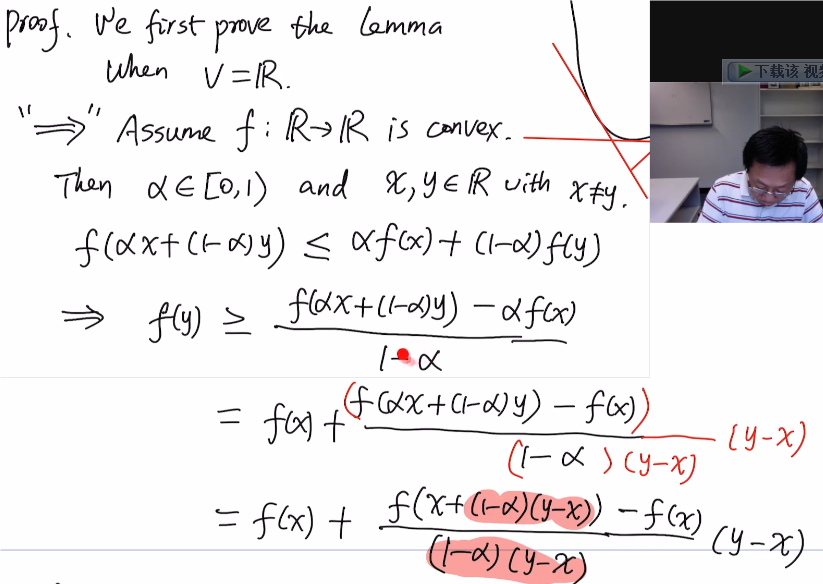 Proof. We first prove the Lemma
when V = ℝ.
下载该 视频
"⟹" Assume f : ℝ → ℝ is convex.
Then α ∈ [0,1) and x, y ∈ ℝ with x ≠ y.
f(αx + (1-α)y) ≤ αf(x) + (1-α)f(y)
⟹ f(y) ≥ (f(αx + (1-α)y) - αf(x)) / (1-α)
= f(x) + (f(αx + (1-α)y) - f(x)) / ((1-α)(y-x)) (y-x)
= f(x) + (f(x + (1-α)(y-x)) - f(x)) / ((1-α)(y-x)) (y-x)